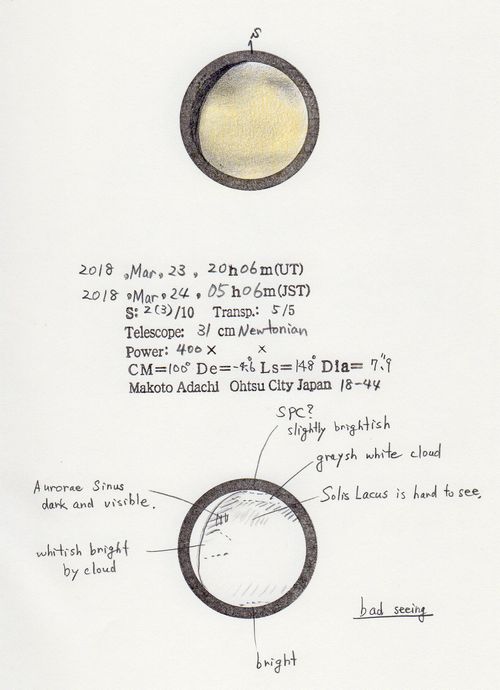 S
2018, Mar, 23, 20h06m(UT)
2018, Mar, 24, 05h06m(JST)
S: 2(3)/10 Transp.: 5/5
Telescope: 31 cm Newtonian
Power: 400× ×
CM=100° De=-4.6 Ls=148° Dia= 7".9
Makoto Adachi Ohtsu City Japan 18-44
SPC?
slightly brightish
graysh white cloud
Aurorae Sinus
dark and visible.
Solis Lacus is hard to see.
whitish bright
by cloud
bad seeing
bright